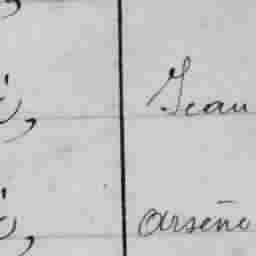 Jean
Arsène